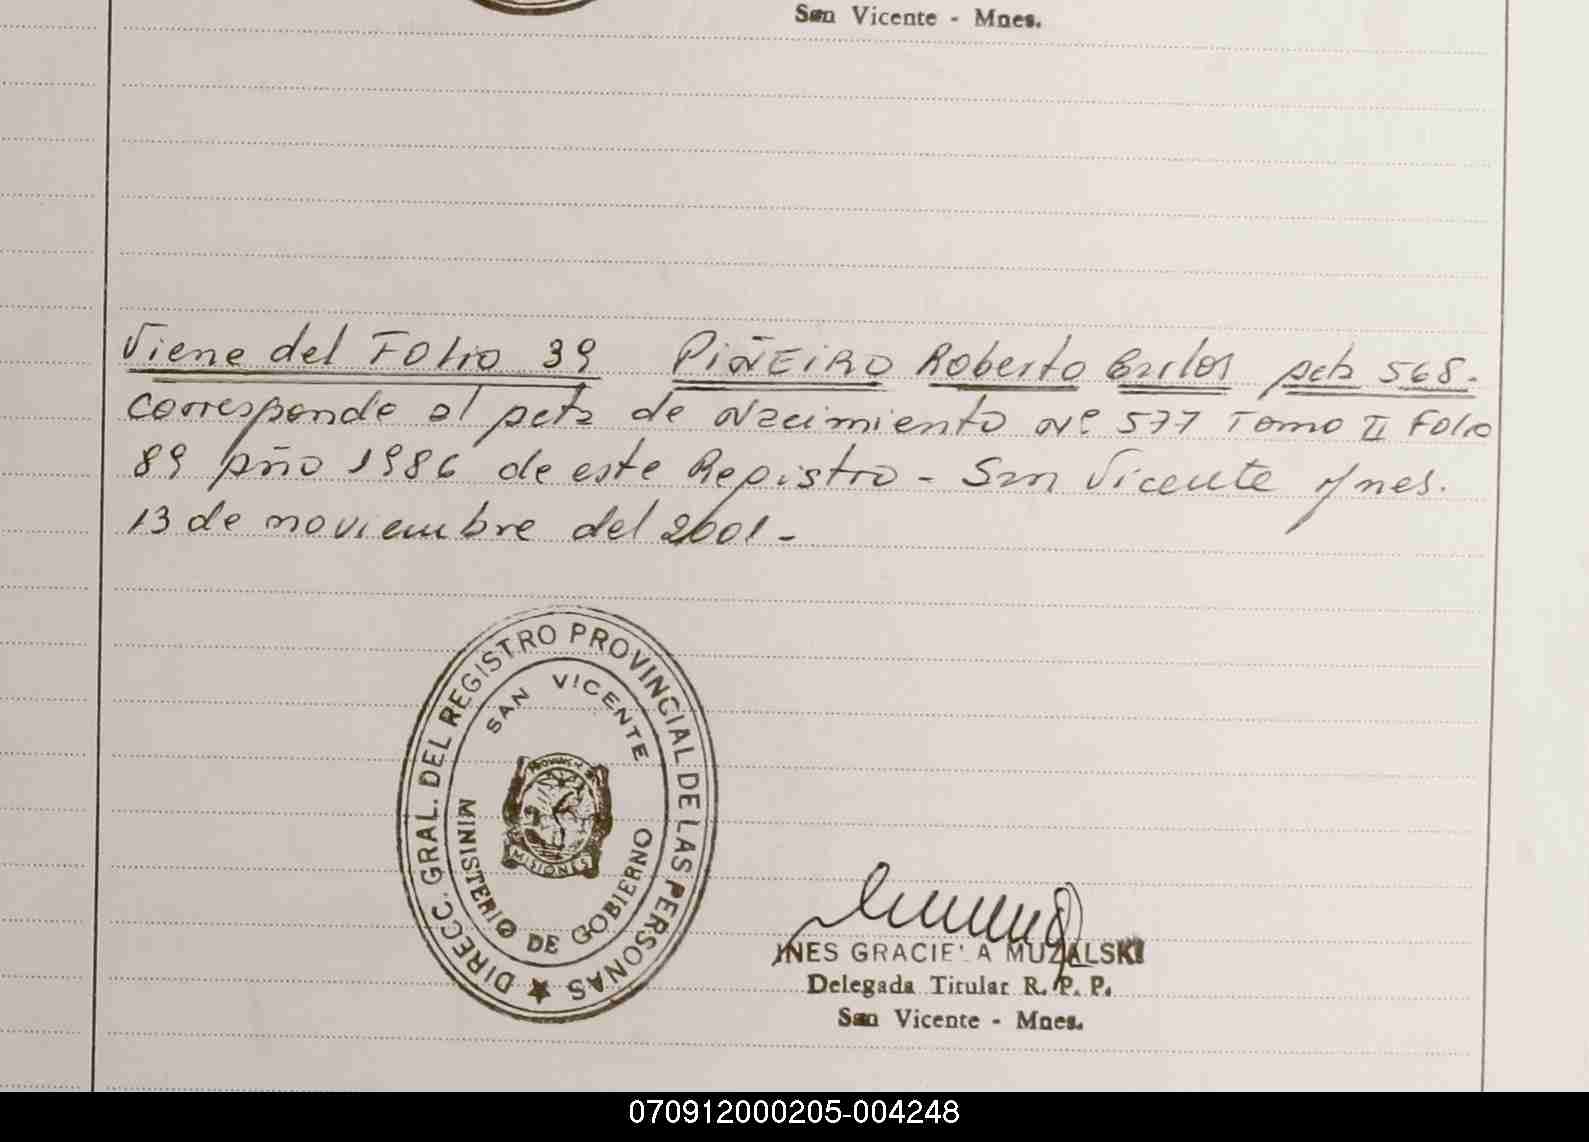 San Vicente - Mnes.
Viene del Folio 39 PIÑEIRO Roberto Carlos acta 568.
corresponde al acta de Nacimiento Nº 577 Tomo II Folio
89 Año 1986 de este Registro - San Vicente Mnes.
13 de noviembre del 2001 -
DIRECC. GRAL. DEL REGISTRO PROVINCIAL DE LAS PERSONAS
SAN VICENTE
PROVINCIA
MISIONES
MINISTERIO DE GOBIERNO
INES GRACIELA MUZALSKI
Delegada Titular R. P. P.
San Vicente - Mnes.
070912000205-004248